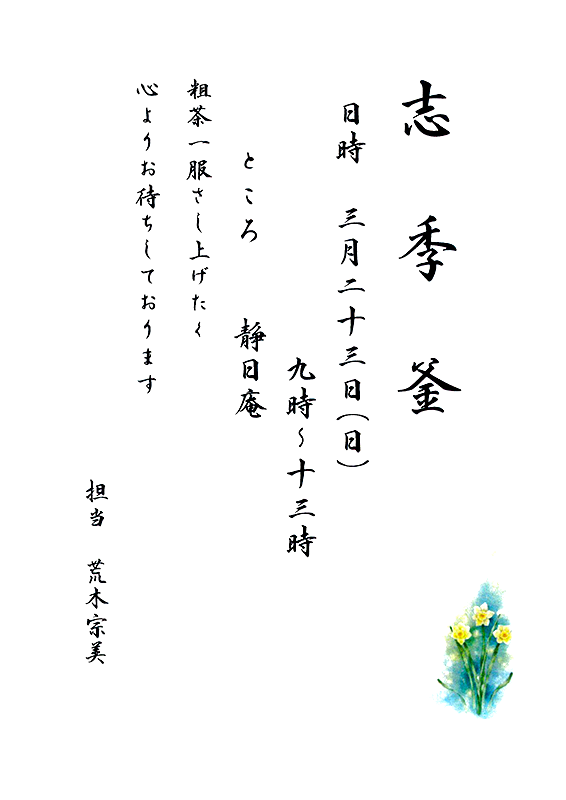 志季釜
日時 三月二十三日(日)
九時~十三時
ところ 静日庵
粗茶一服さし上げたく
心よりお待ちしております
担当 荒木宗美